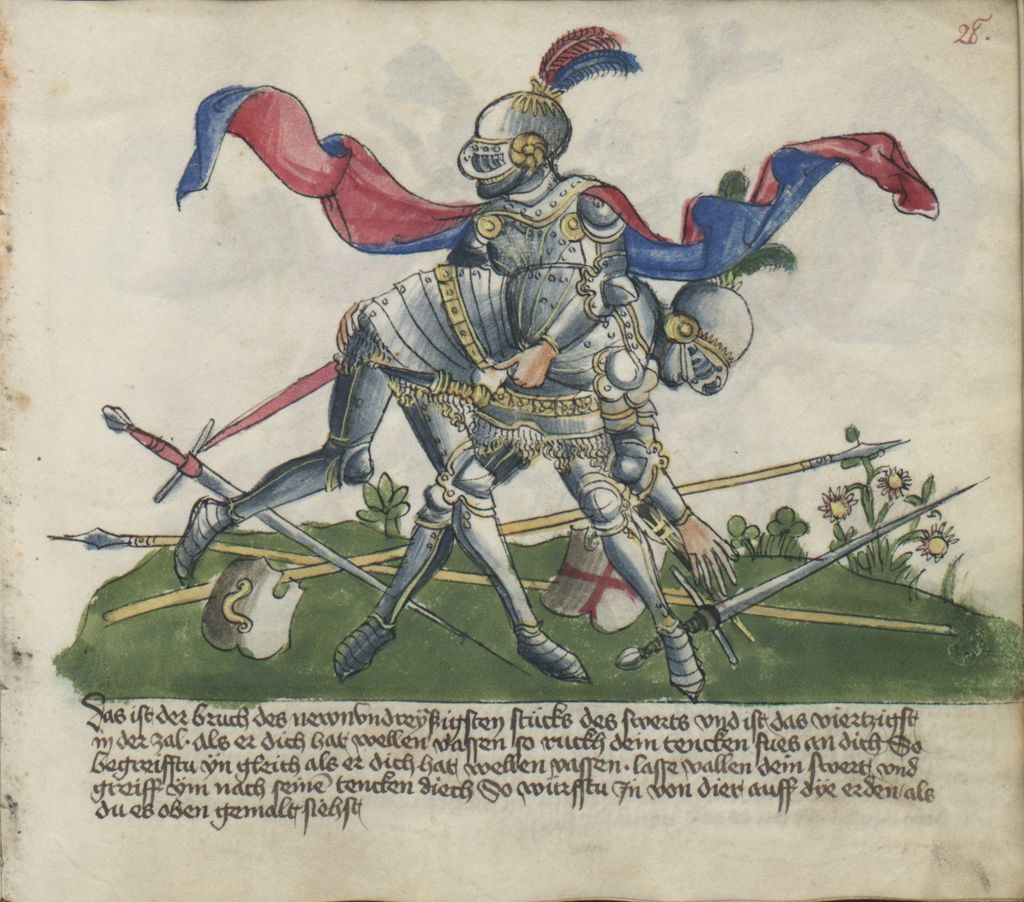 28.
Das ist der bruch des newnvndreyßigsten stücks des swerts vnd ist das viertzigst
in der zal · als er dich hat wellen vassen so ruckh dein tencken fues an dich So
begreifftu yn gleich als er dich hat wellen vassen · lasse vallen dein swert vnd
greiff ym nach seinē tencken diech So würfftu In von dier auff dye erden als
du es oben gemalt siehst